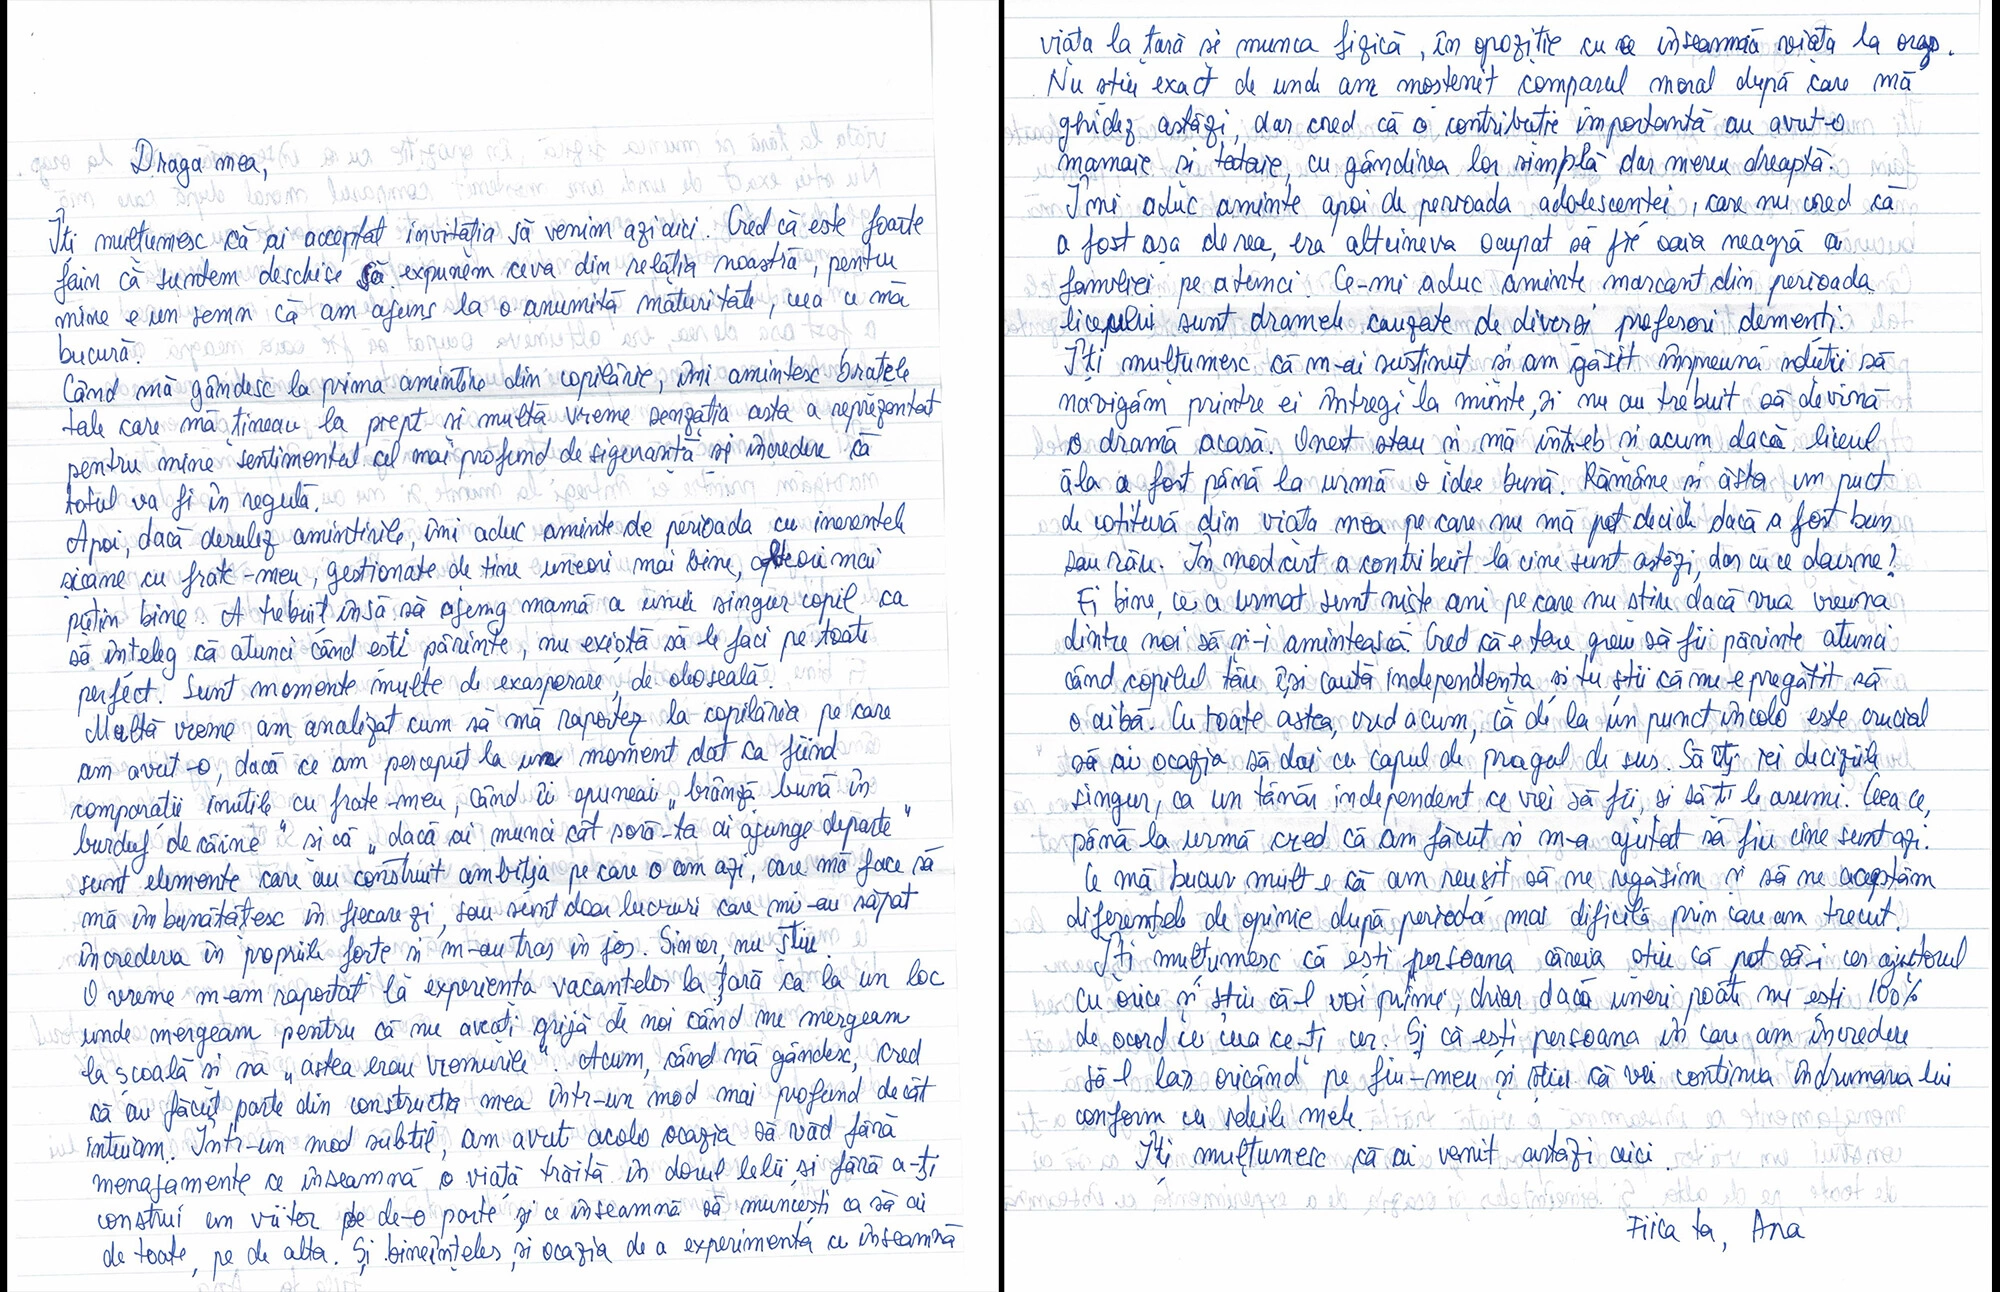 Draga mea,
Îți mulțumesc că ai acceptat invitația să venim azi aici. Cred că este foarte
fain că suntem deschise să expunem ceva din relația noastră, pentru
mine e un semn că am ajuns la o anumită maturitate, ceea ce mă
bucură.
Când mă gândesc la prima amintire din copilărie, îmi amintesc brațele
tale care mă țineau la piept și multă vreme senzația asta a reprezentat
pentru mine sentimentul cel mai profund de siguranță și încredere că
totul va fi în regulă.
Apoi, dacă derulez amintirile, îmi aduc aminte de perioada cu inerentele
șicane cu frate-meu, gestionate de tine uneori mai bine, alteori mai
puțin bine. A trebuit însă să ajung mamă a unui singur copil ca
să înțeleg că atunci când ești părinte, nu există să le faci pe toate
perfect. Sunt momente multe de exasperare, de oboseală.
Multă vreme am analizat cum să mă raportez la copilăria pe care
am avut-o, dacă ce am perceput la un moment dat ca fiind
comparații inutile cu frate-meu, când îi spuneai „brânză bună în
burduf de câine" și că „dacă ai munci cât soră-ta ai ajunge departe"
sunt elemente care au construit ambiția pe care o am azi, care mă face să
mă îmbunătățesc în fiecare zi, sau sunt doar lucruri care mi-au săpat
încrederea în propriile forțe și m-au tras în jos. Sincer, nu știu.
O vreme m-am raportat la experiența vacanțelor la țară ca la un loc
unde mergeam pentru că nu aveați grijă de noi când nu mergeam
la școală și na „astea erau vremurile". Acum, când mă gândesc, cred
că au făcut parte din construcția mea într-un mod mai profund decât
intuiam. Într-un mod subtil, am avut acolo ocazia să văd fără
menajamente ce înseamnă o viață trăită în dorul lelii și fără a-ți
construi un viitor pe de-o parte și ce înseamnă să muncești ca să ai
de toate, pe de alta. Și bineînțeles, și ocazia de a experimenta ce înseamnă
viața la țară și munca fizică, în opoziție cu ce înseamnă viața la oraș.
Nu știu exact de unde am moștenit compasul moral după care mă
ghidez astăzi, dar cred că o contribuție importantă au avut-o
mamaie și tataie, cu gândirea lor simplă dar mereu dreaptă.
Îmi aduc aminte apoi de perioada adolescenței, care nu cred că
a fost așa de rea, era altcineva ocupat să fie oaia neagră a
familiei pe atunci. Ce-mi aduc aminte marcant din perioada
liceului sunt dramele cauzate de diverși profesori demenți.
Îți mulțumesc că m-ai susținut și am găsit împreună soluții să
navigăm printre ei întregi la minte, și nu au trebuit să devină
o dramă acasă. Onest stau și mă întreb și acum dacă liceul
ăla a fost până la urmă o idee bună. Rămâne și ăsta un puct
de cotitură din viața mea pe care nu mă pot decide dacă a fost bun
sau rău. În mod cert a contribuit la cine sunt astăzi, dar cu ce daune?
Ei bine, ce a urmat sunt niște ani pe care nu știu dacă vrea vreuna
dintre noi să și-i amintească. Cred că e tare greu să fii părinte atunci
când copilul tău își caută independența și tu știi că nu e pregătit să
o aibă. Cu toate astea, cred acum, că de la un punct încolo este crucial
să ai ocazia să dai cu capul de pragul de sus. Să îți iei deciziile
singur, ca un tânăr independent ce vrei să fii, și să ți le asumi. Ceea ce,
până la urmă cred că am făcut și m-a ajutat să fiu cine sunt azi.
Ce mă bucur mult e că am reușit să ne regăsim și să ne acceptăm
diferențele de opinie după perioda mai dificilă prin care am trecut.
Îți mulțumesc că ești persoana căreia știu că pot să-i cer ajutorul
cu orice și știu că-l voi primi, chiar dacă uneri poate nu ești 100%
de acord cu ceea ce-ți cer. Și că ești persoana în care am încredere
să-l las oricând pe fiu-meu și știu că vei continua îndrumarea lui
conform cu regulile mele.
Îți mulțumesc că ai venit astăzi aici.
Fiica ta, Ana